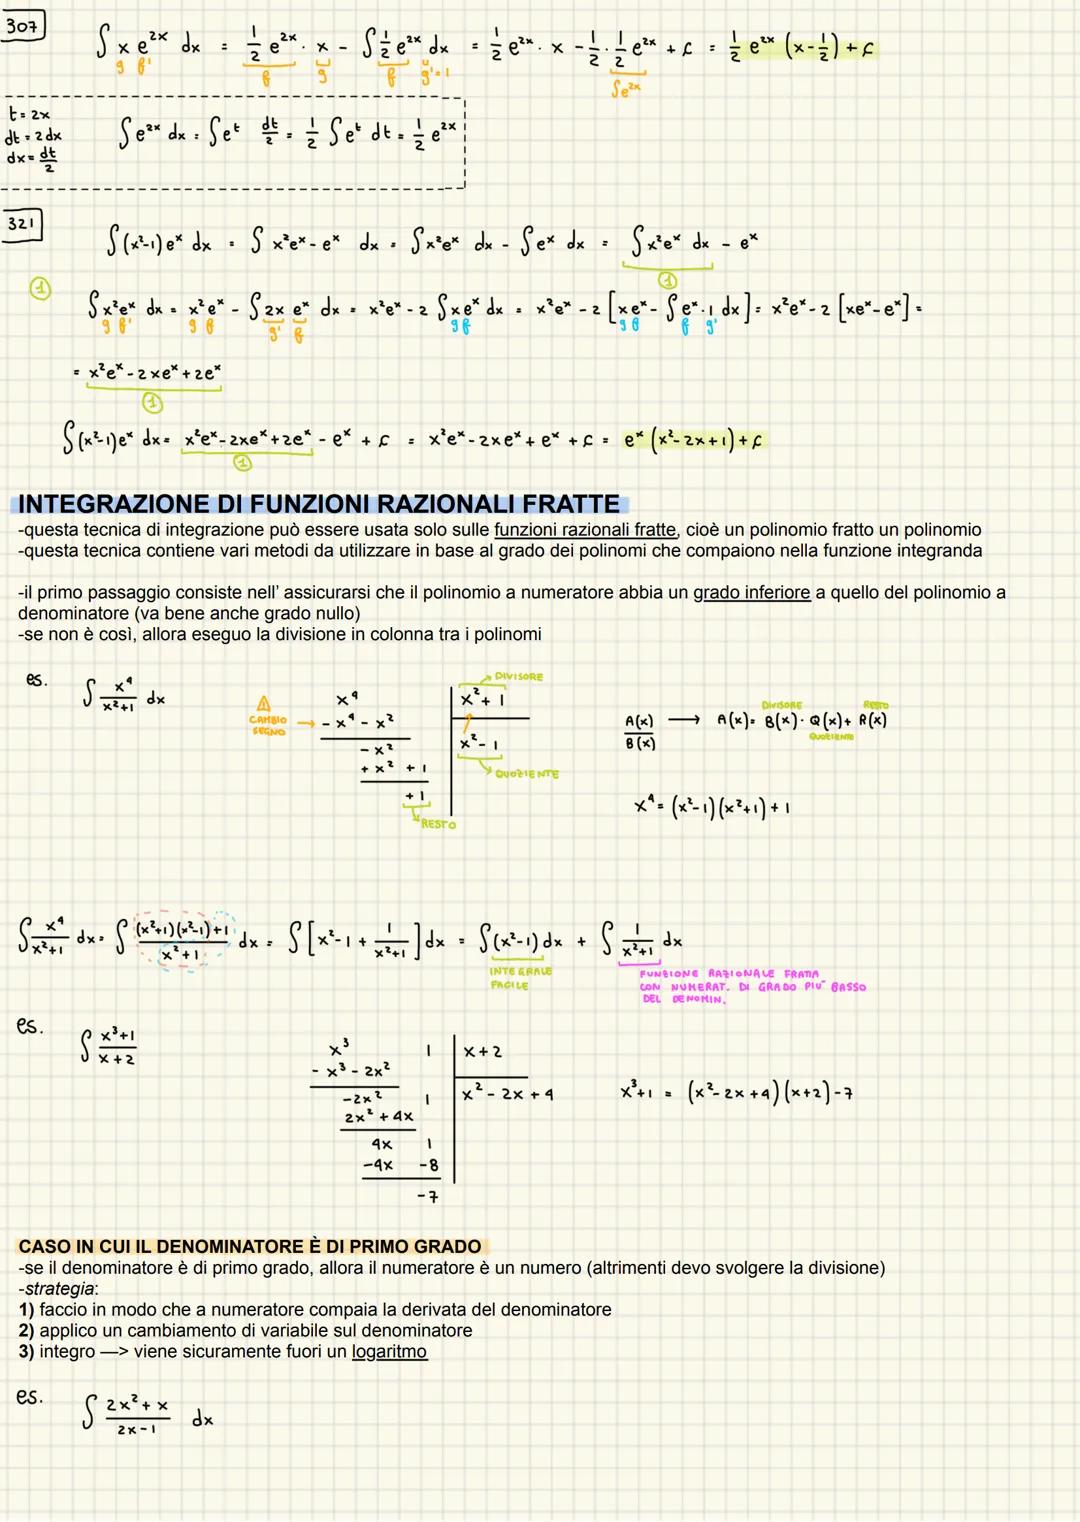 307
∫ x e^{2x} dx = 1/2 e^{2x} · x - ∫ 1/2 e^{2x} dx = 1/2 e^{2x} · x - 1/2 · 1/2 e^{2x} + c = 1/2 e^{2x} (x - 1/2) + c
g f' f g f g'=1 ∫e^{2x}
t = 2x
dt = 2 dx
dx = dt/2
∫ e^{2x} dx = ∫ e^t dt/2 = 1/2 ∫ e^t dt = 1/2 e^{2x}
321
∫ (x²-1) e^x dx = ∫ x²e^x - e^x dx = ∫ x²e^x dx - ∫ e^x dx = ∫ x²e^x dx - e^x
1
1
∫ x²e^x dx = x²e^x - ∫ 2x e^x dx = x²e^x - 2 ∫ x e^x dx = x²e^x - 2 [xe^x - ∫ e^x · 1 dx] = x²e^x - 2 [xe^x - e^x] =
g f' g f g' f g f g f f g'
= x²e^x - 2xe^x + 2e^x
1
∫ (x²-1)e^x dx = x²e^x - 2xe^x + 2e^x - e^x + c = x²e^x - 2xe^x + e^x + c = e^x (x² - 2x + 1) + c
1
INTEGRAZIONE DI FUNZIONI RAZIONALI FRATTE
-questa tecnica di integrazione può essere usata solo sulle funzioni razionali fratte, cioè un polinomio fratto un polinomio
-questa tecnica contiene vari metodi da utilizzare in base al grado dei polinomi che compaiono nella funzione integranda
-il primo passaggio consiste nell' assicurarsi che il polinomio a numeratore abbia un grado inferiore a quello del polinomio a
denominatore (va bene anche grado nullo)
-se non è così, allora eseguo la divisione in colonna tra i polinomi
es.
∫ x⁴/(x²+1) dx
! CAMBIO SEGNO →
x⁴ | x² + 1 → DIVISORE
- x⁴ - x² | x² - 1 → QUOZIENTE
- x²
+ x² + 1
+ 1 → RESTO
DIVISORE RESTO
A(x)/B(x) → A(x) = B(x) · Q(x) + R(x)
QUOZIENTE
x⁴ = (x²-1)(x²+1) + 1
∫ x⁴/(x²+1) dx = ∫ ((x²+1)(x²-1)+1)/(x²+1) dx = ∫ [x² - 1 + 1/(x²+1)] dx = ∫ (x²-1) dx + ∫ 1/(x²+1) dx
INTEGRALE
FACILE
FUNZIONE RAZIONALE FRATTA
CON NUMERAT. DI GRADO PIÙ BASSO
DEL DENOMIN.
es.
∫ (x³+1)/(x+2)
x³ 1 | x + 2
- x³ - 2x² | x² - 2x + 4
-2x² 1
2x² + 4x
4x 1
-4x -8
-7
x³+1 = (x² - 2x + 4)(x+2) - 7
CASO IN CUI IL DENOMINATORE È DI PRIMO GRADO
-se il denominatore è di primo grado, allora il numeratore è un numero (altrimenti devo svolgere la divisione)
-strategia:
1) faccio in modo che a numeratore compaia la derivata del denominatore
2) applico un cambiamento di variabile sul denominatore
3) integro —> viene sicuramente fuori un logaritmo
es.
∫ (2x² + x)/(2x - 1) dx